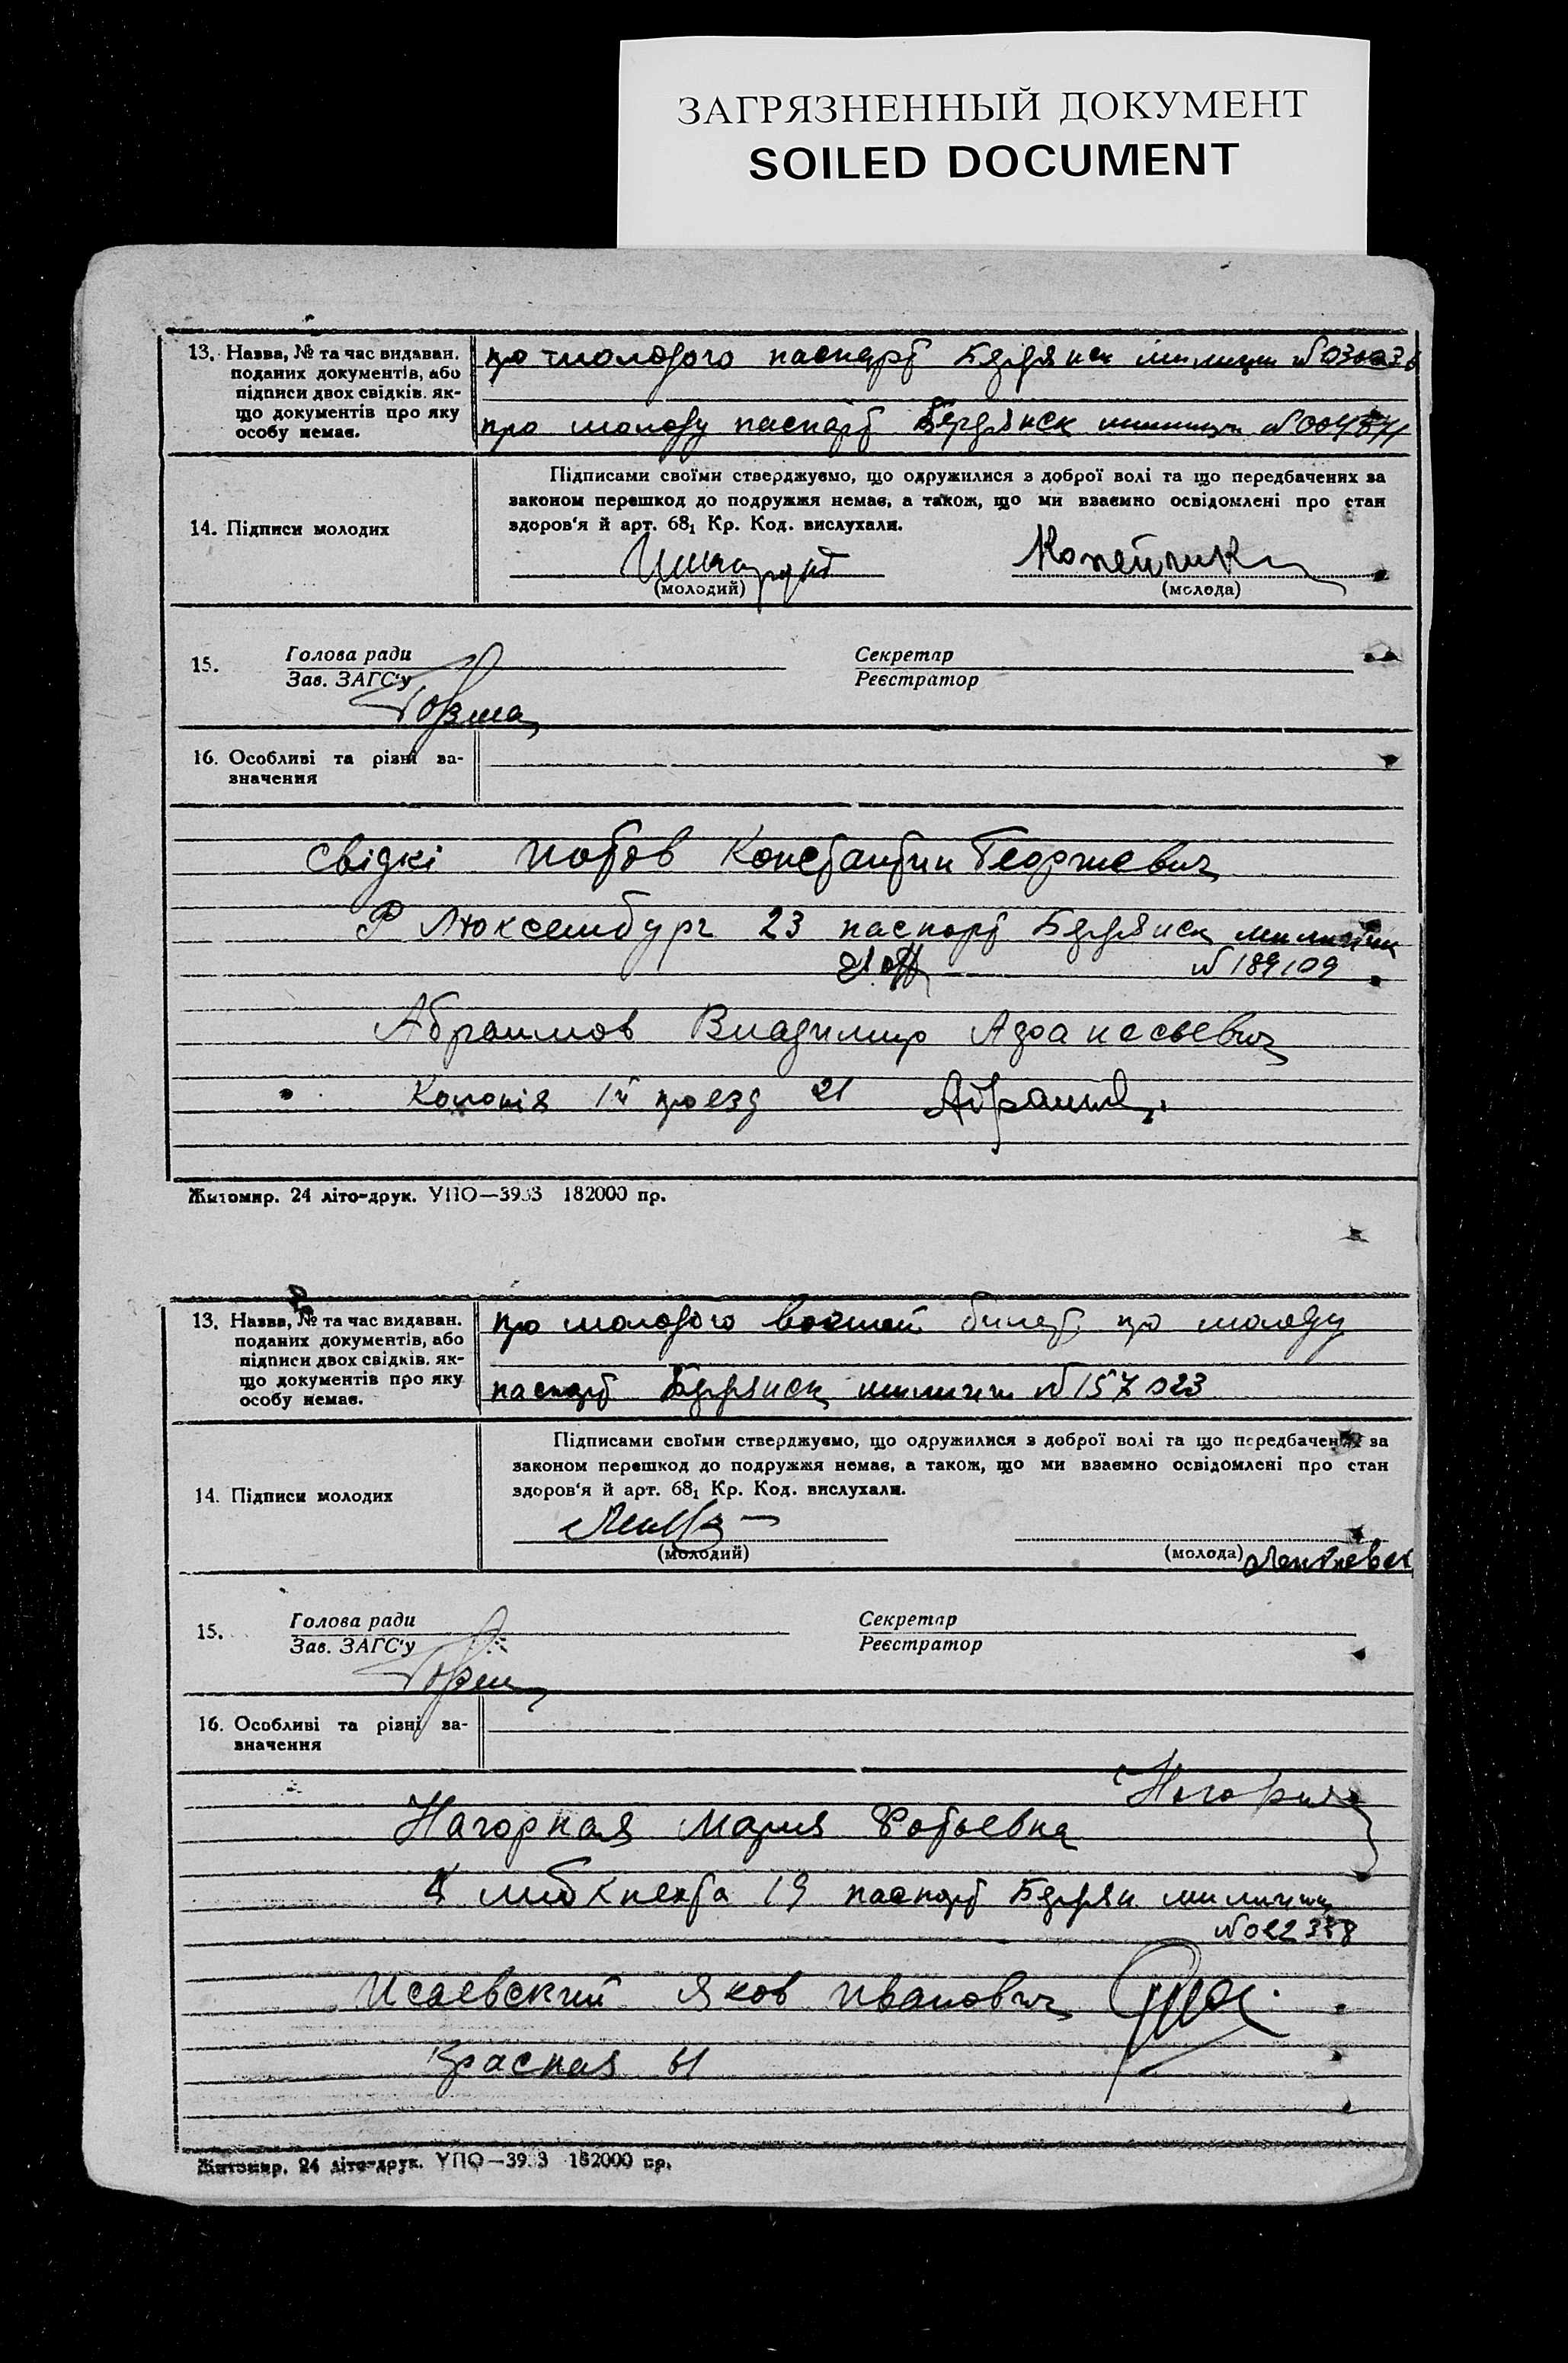 ЗАГРЯЗНЕННЫЙ ДОКУМЕНТ
SOILED DOCUMENT
13. Назва, № та час видаван. поданих документів, або підписи двох свідків. як- що документів про яку особу немає.
про молодого паспорт Бердянск милиции
про молоду паспорт Бердянск милиции
14. Підписи молодих
Підписами своїми стверджуємо, що одружилися з доброї волі та що передбачених за
законом перешкод до подружжя немає, а також, що ми взаємно освідомлені про стан
здоров'я й арт. 68₁ Кр. Код. вислухали.
(молодий) (молода)
15. Голова ради Секретар
Зав. ЗАГС'у Реєстратор
16. Особливі та різні за-
значення
свідкі Константин Георгиевич
Р Люксембург 23 паспорт Бердянск милиции
№ 189109
Абрамов Владимир Афанасьевич
Колонія 1й проезд 21
Житомир. 24 літо-друк. УПО—3933 182000 пр.
13. Назва, № та час видаван. поданих документів, або підписи двох свідків. як- що документів про яку особу немає.
про молодого военный билет, про молоду
паспорт Бердянск милиции № 157023
14. Підписи молодих
Підписами своїми стверджуємо, що одружилися з доброї волі та що передбачених за
законом перешкод до подружжя немає, а також, що ми взаємно освідомлені про стан
здоров'я й арт. 68₁ Кр. Код. вислухали.
(молодий) (молода)
15. Голова ради Секретар
Зав. ЗАГС'у Реєстратор
16. Особливі та різні за-
значення
Нагорная
Нагорная Мария Фотьевна
К Либкнехта 19 паспорт Бердян милиции
Исаевский Яков Иванович
Красная 61
Житомир. 24 літо-друк. УПО—3933 182000 пр.